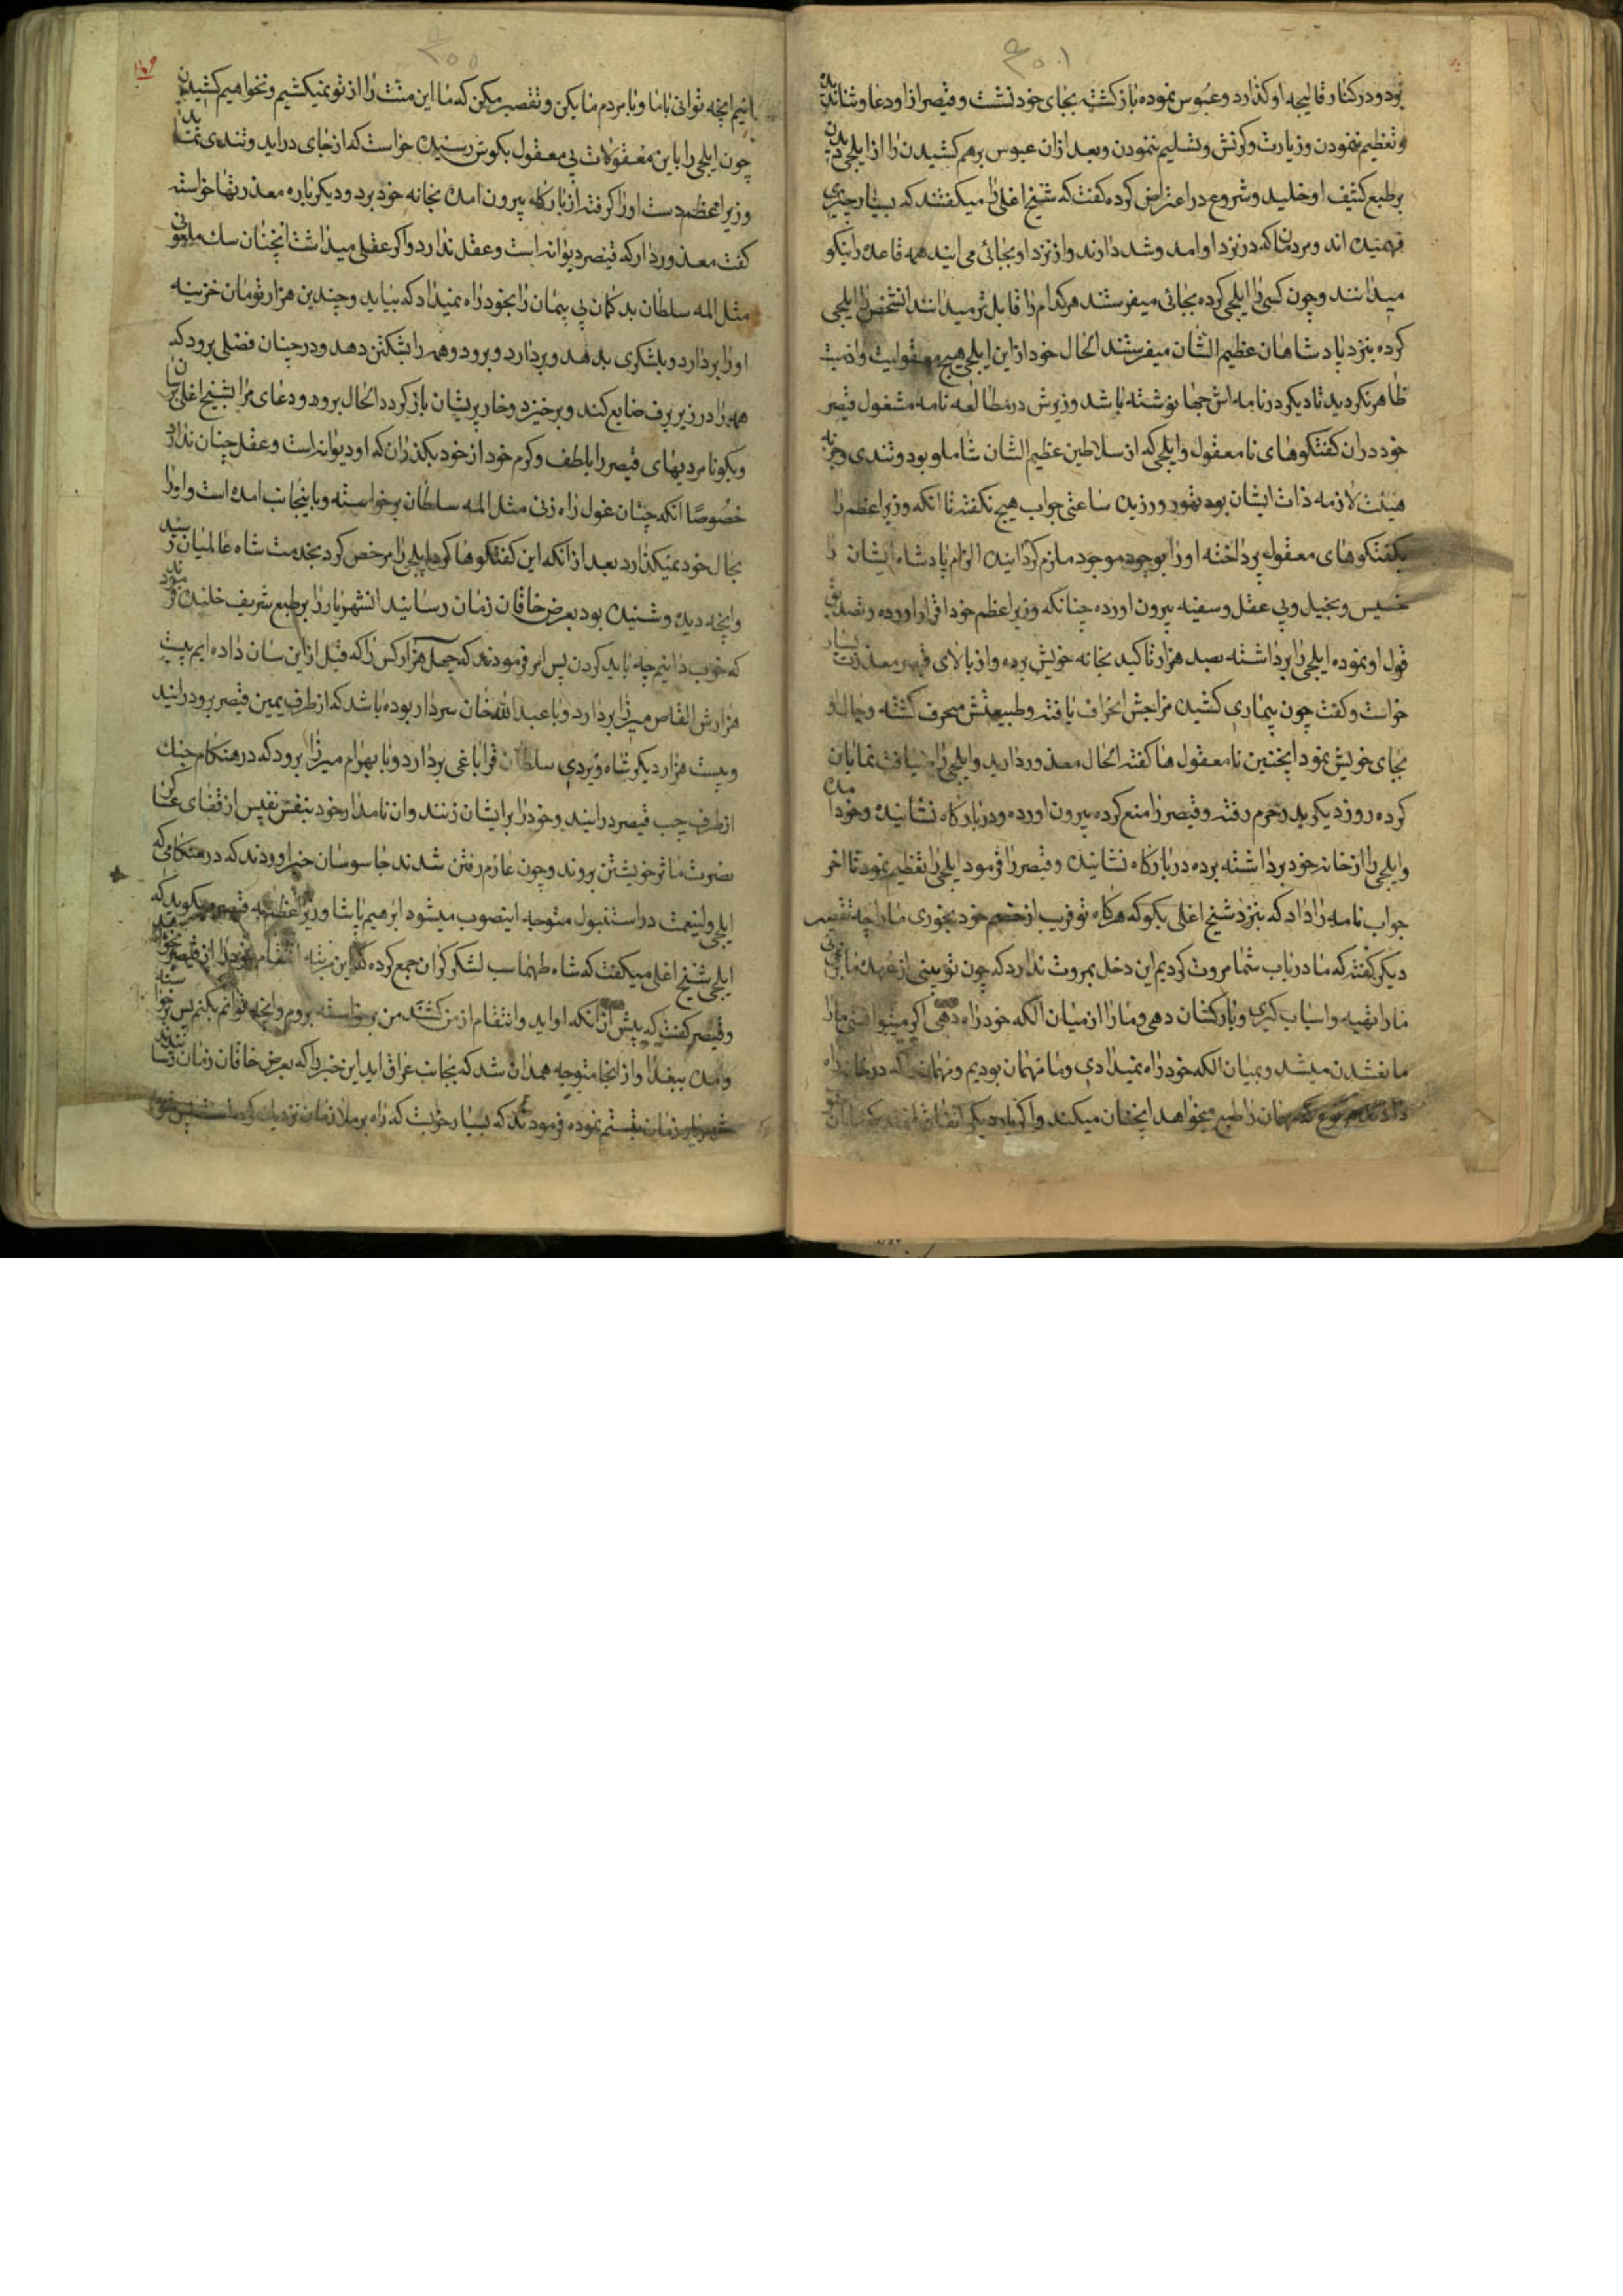 بود و در کنار قالیچه او کذارد و عبوس نموده بازکشت بجای خود نشست و قیصر از او دعا و ثنا
و تعظیم ننمودن و زیارت و کرنش و تسلیم ننمودن و بعد ازان عبوس برهم کشیدن را از ایلچی دیدن
برطبع کثیف او خلید و شروع در اعتراض کرده کفت که شیخ اغلی را میکفتند که بسیار چیزی
فهمیده اند و مردمان که در نزد او امد و شد دارند و از نزد او بجائی می ایند همه قاعده را نیکو
میدانند و چون کسی را ایلچی کرده بجائی میفرستند هرکدام را قابل تر میدانند انشخص را ایلچی
کرده بنزد پادشاهان عظیم الشان میفرستند الحال خود از این ایلچی هیچ معقولیت و ادمیت
ظاهر نکردید تا دیکر در نامه اش جها نوشته باشد وزیرش در مطالعه نامه مشغول قیصر
خود دران کفتکوهای نامعقول و ایلچی که از سلاطین عظیم الشان شاملو بود و تندی و
هیئت لازمه ذات ایشان بود تهور ورزیده ساعتی جواب هیچ نکفته تا انکه وزیر اعظم را
بکفتکوهای معقول پرداخته او را بوجود موجود ملزم کردانیده الزام پادشاه ایشان را
خسیس و بخیل و بی عقل و سفیه بیرون اورده چنانکه وزیر اعظم خود اقرار اورده و تصدیق
قول او نموده ایلچی را برداشته بصد هزار تاکید بخانه خویش برده و از بالای قیصر معذرت بسیار
خواست و کفت چون بیماری کشیده مزاجش انحراف یافته و طبیعتش منحرف کشته و حالا او
بجای خویش نبود اینچنین نامعقول ها کفته الحال معذور دارید و ایلچی را ضیافت نمایان
کرده روز دیکر بدر حرم رفته و قیصر را منع کرده بیرون اورده و در بارکاه نشانیده و خود امده
و ایلچی را از خانه خود برداشته برده در بارکاه نشانیده و قیصر را فرمود ایلچی را تعظیم نمود تا اخر
جواب نامه را داد که بنزد شیخ اغلی بکو که هرکاه تو فریب از خصم خود بخوری ما را چه تقصیر
دیکر کفته که ما در باب شما مروت کردیم این دخل بمروت ندارد که چون تو بینی از عهده ما
ما را تهیه و اسباب کیری و بارکشان دهی و ما را از میان الکه خود راه دهی اکر میتوانستی ما را
ما نشدن میشد و بمیان الکه خود راه نمیدادی و ما مهمان بودیم و مهمان را که در خانه راه
دادند هر نوع که مهمان را طبع میخواهد اینچنان میکند و اکر بار دیکر اتفاق افتد
انیم انچه توانی باما و با مردم ما بکن و تقصیر مکن که ما این منت را از تو نمیکشیم و نخواهیم کشیدن
چون ایلچی را باین معقولات بی معقول بکوش رسیده خواست که از جای در اید و تندی نماید
وزیر اعظم دست او را کرفته از بارکاه بیرون امده بخانه خود برد و دیکر باره معذرتها خواسته
کفت معذور دار که قیصر دیوانه است و عقل ندارد و اکر عقلی میداشت اینچنان سک ملعونی
مثل المه سلطان بدکمان بی پیمان را بخود راه نمیداد که بیاید و چندین هزار تومان خزینه
او را بردارد و بلشکری بدهد و بردارد و برود و همه را بشکتن دهد و در چنان فصلی برود که
همه را در زیر برف ضایع کند و برخیزد و خار پریشان باز کردد الحال برو و دعای مرا بشیخ اغلی برسان
و بکو نامردیهای قیصر را با لطف و کرم خود از خود بکذران که او دیوانه است و عقل چنان ندارد
خصوصا انکه چنان غول راه زنی مثل المه سلطان برخواسته و باینجانب امده است و او را
بحال خود نمیکذارد بعد از انکه این کفتکوها کرد ایلچی را مرخص کرد بخدمت شاه عالمیان رسید
و انچه دیده و شنیده بود بعرض خاقان زمان رسانید انشهریار را برطبع شریف خلیده فرمود
که خوب دانیم چه باید کردن پس امر فرمودند که چهل هزار کس را که قبل از این سان داده ایم بیست
هزارش القاص میرزا بردارد و با عبدالله خان سردار بوده باشد که از طرف یمین قیصر برود رانید
و بیست هزار دیکر شاه ویردی سلطان قراباغی بردارد و با بهرام میرزا برود که در هنکام جنک
از طرف چپ قیصر در ایند و خود را بر ایشان زنند و ان نامدار خود بنفس نفیس از قفای عساکر
نصرت ماثر خویشتن بروند و چون عازم رفتن شدند جاسوسان خبر اوردند که در هنکامی که
ایلچی ولینعمت در استنبول متوجه اینصوب میشود ابرهیم پاشا وزیر اعظم به قیصر میکوید که
ایلچی شیخ اغلی میکفت که شاه طهماسب لشکر کران جمع کرده که این مرتبه انتقام خود را از قیصر
و قیصر کفت که پیش از انکه او اید و انتقام از من کشند من برخواسته بروم و انچه توانم بکنم پس برخواسته
و امده ببغداد و از انجا متوجه همدان شد که بجانب عراق اید این خبر را که بعرض خاقان زمان رسانیدند
شهریار زمان تبسم نموده فرمودند که بسیار خوبست که راه بر ملازمان نزدیک کرد